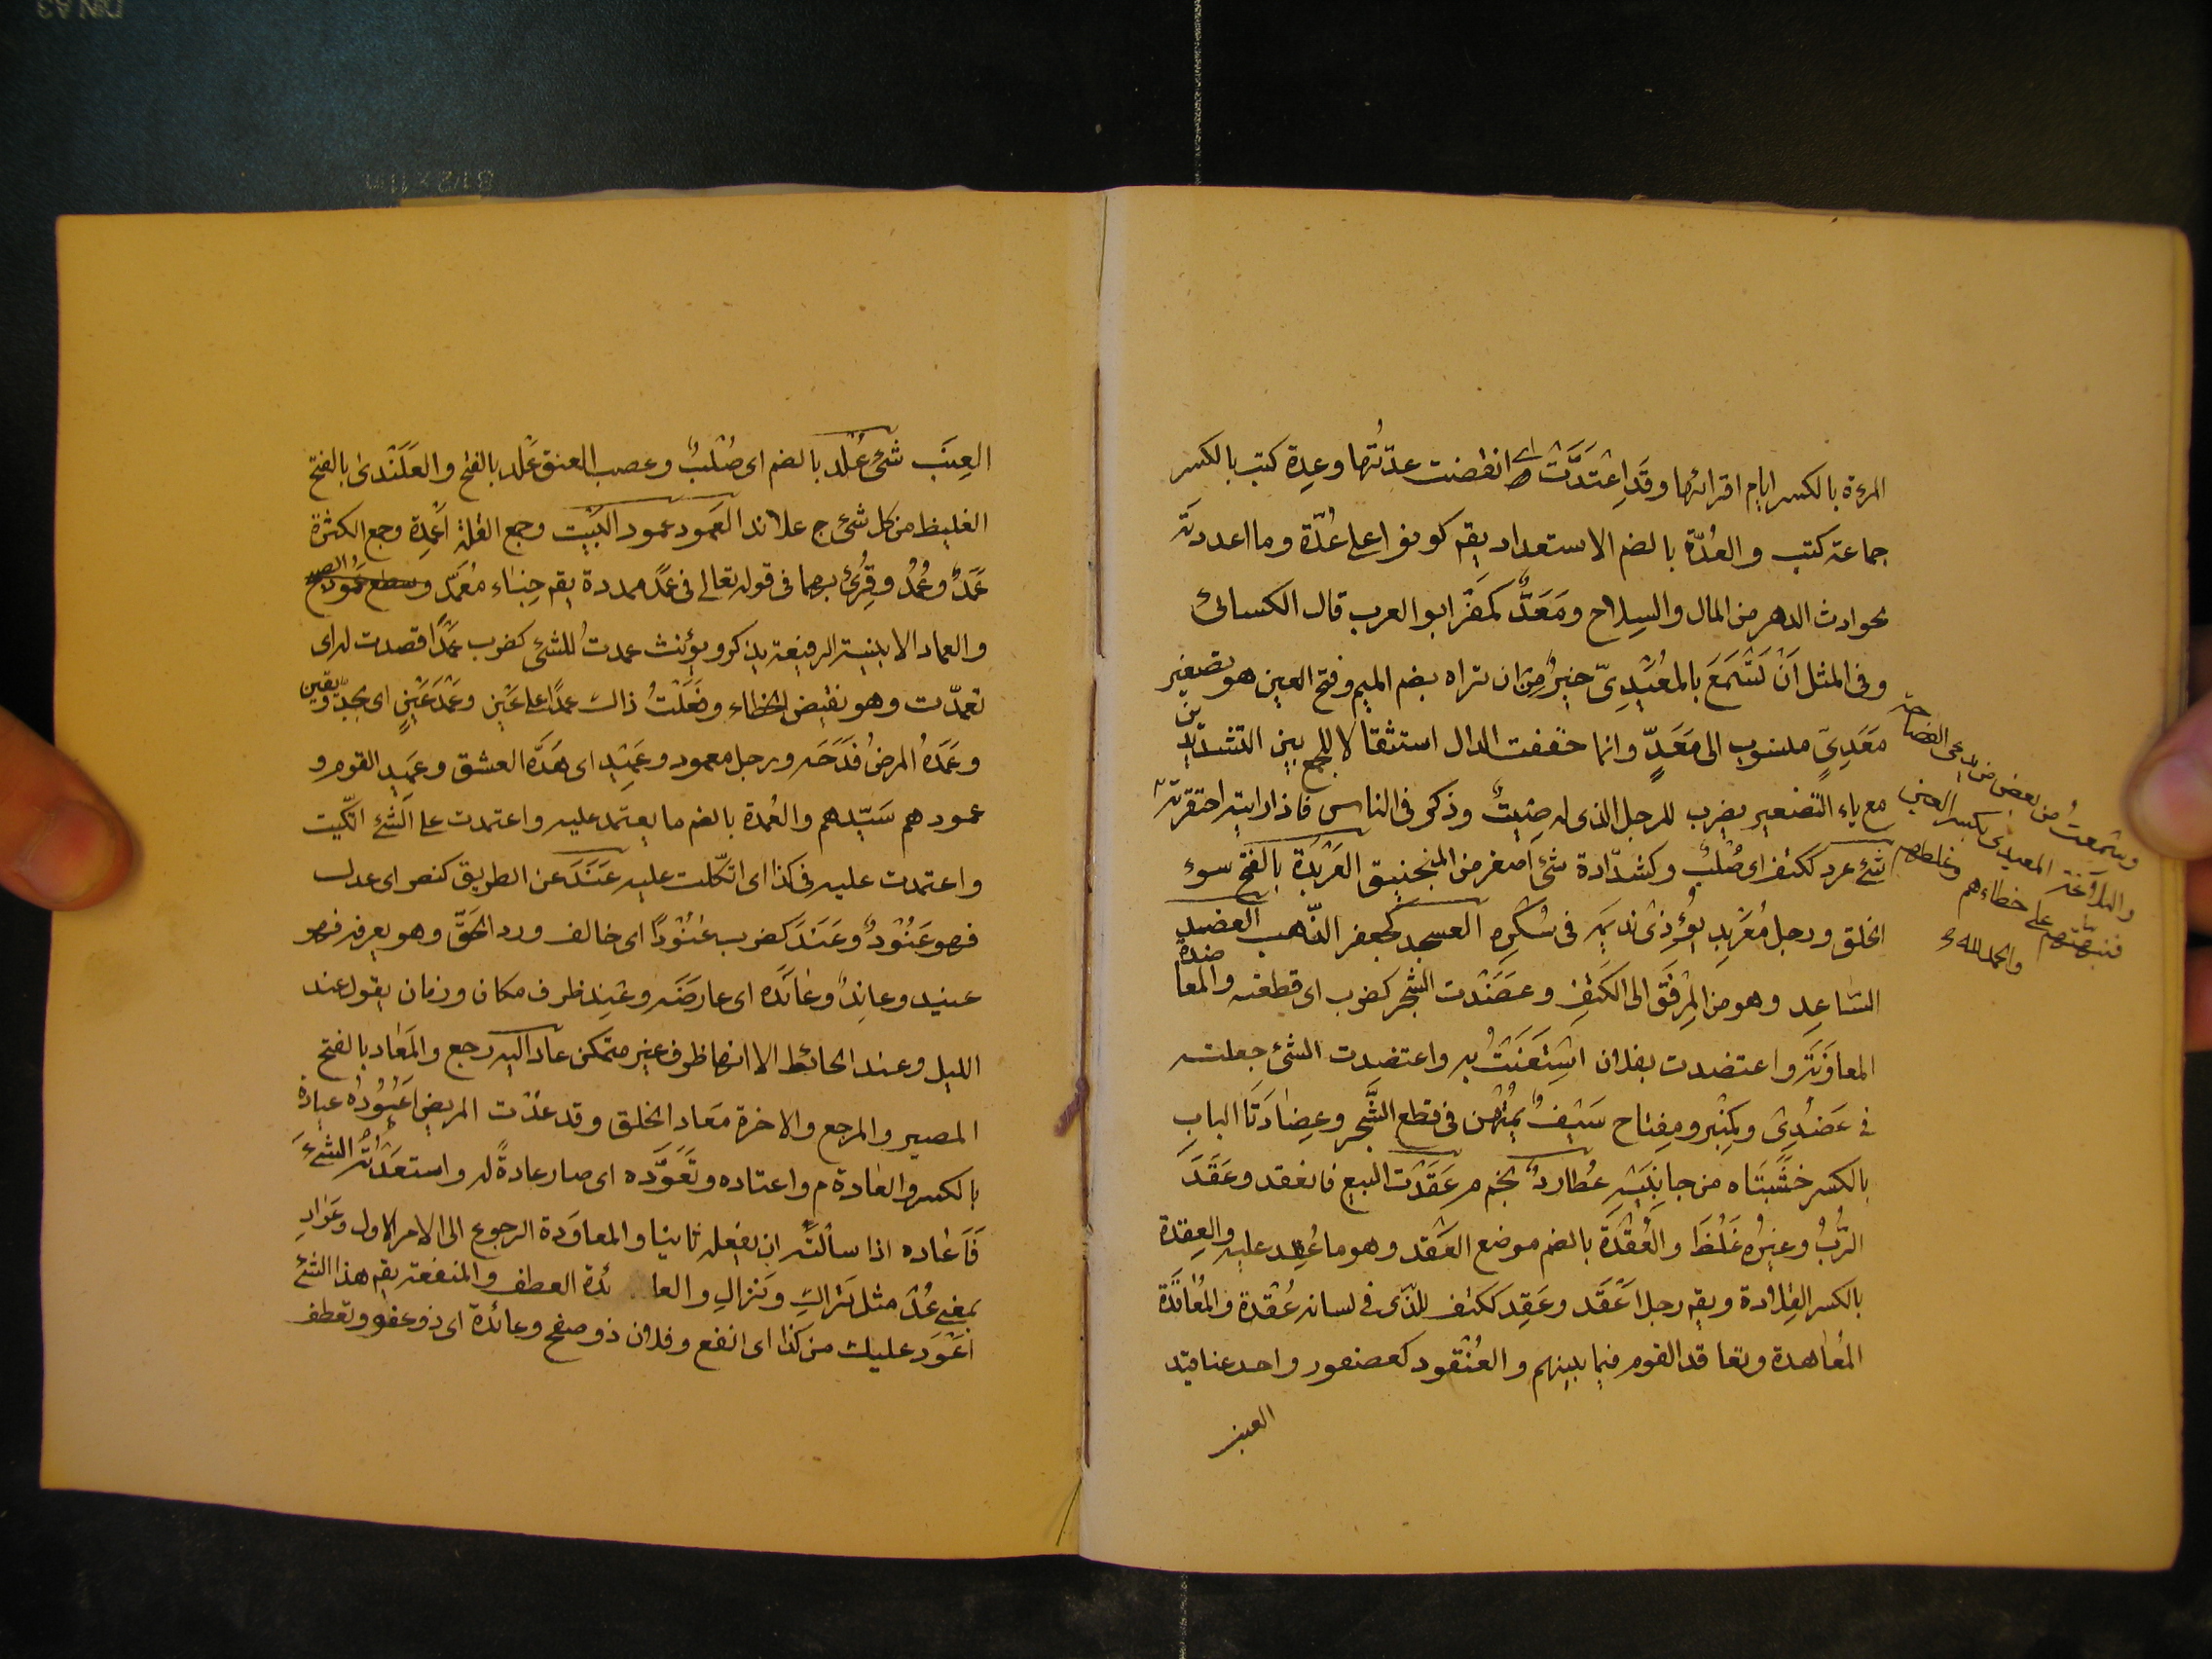 المرءة بالكسر ايام اقرائها وقد اعْتَدَّتْ اى انقضت عدّتُها وعِدة كتب بالكسر
جماعة كتب والعُدّة بالضم الاستعداد يقم كونوا على عُدّة وما اعددته
لحوادث الدهر من المال والسِلاح ومَعَدٌّ كمَفَرّ ابو العرب قال الكسائىُ
وفى المثل اَنْ تَسْمَعَ بالمعَيْدِىّ خيرٌ من ان تراه بضم الميم وفتح العين هو تصغير
مَعَدِىّ منسوب الى مَعَدٍّ وانما خففت الدال استثقالا للجمع بين التشديدين
مع ياء التصغير يضرب للرجل الذى له صِيْتٌ وذكر فى الناس فاذا رايته احتقرته
شئ عرد ككتف اى صُلْبٌ وكشدّادة شئ اصغر من المنجنيق العَرْبَدَة بالفتح سوء
الخلق ورجل مُعَرْبِد يُؤْذِى نديمَه فى سُكْرِه العسجد كجعفر الذّهب العضد
الساعِد وهو من المِرْفَق الى الكَتِفِ وعَضَدْت الشجر كضرب اى قطعته والمعاضدة
المعاوَنَة واعتضدت بفلان اسْتَعَنْتُ به واعتضدت الشئ جعلته
فى عَضُدِى وكمِنْبر ومِفتاح سَيْفٌ يُمْتَهَن فى قطع الشَّجر وعِضادَتَا الباب
بالكسر خَشَبَتَاه من جانِبَيْهِ عُطاردٌ نجم م عَقَدْت البيع فانعقد وعَقَدَ
الرّبُّ وغيرُه غَلُظَ والعُقْدَة بالضم موضع العَقد وهو ما عُقِد عليه والعِقدة
بالكسر القِلادة ويقم رجل اَعْقَد وعَقِد ككتف للذّى فى لسانه عُقْدة والمُعاقَدَة
المُعاهدة وتعاقد القوم فيما بينهم والعُنْقود كعصفور واحد عناقيد
العنب
وسمعتُ من بعض من يدعى الفصاحة
والبلاغة المعيدى بكسر العين
فنبهتهم على خطاءهم وغلطهم
والحمد لله
العِنَب شئ عُلْد بالضم اى صُلْبٌ وعصب العنق عَلْد بالفتح والعَلَنْدىٰ بالفتح
الغليظ من كل شئ ج علاند العَمود عمود البَيْت وجمع القلة اَعْمِدة وجمع الكثرة
عَمَدٌ وعُمُدٌ وقِرُئ بهما فى قوله تعالى فى عَمَد ممددة يقم خِباء مُعَمَّد وسطع عَمُود الصبح
والعماد الابنية الرفيعة يذكر ويؤنث عمدتُ للشئ كضرب عَمْدًا قصدت له اى
تعمّدت وهو نقيض الخطاء وفَعَلْتُ ذالك عمدًا على عَيْنٍ وعَمْدَ عَيْنٍ اى بجِدّ ويقين
وعَمَدَهُ المرضُ فَدَحَه ورجل معمود وعَمِيْد اى هَدَّه العشق وعَمِيد القوم و
عمودهم سَيّدهم والعُمدة بالضم ما يعتمد عليه واعتمدت على الشئ اتّكيت
واعتمدت عليه فى كذا اى اتّكلت عليه عَنَدَ عن الطريق كنصر اى عدل
فهو عَنُوْدٌ وعَنَدَ كضرب عُنُوْدًا اى خالف ورد الحَقّ وهو يعرفه فهو
عنيد وعاندٌ وعَانَدَه اى عارضَه وعِند ظرف مكان وزمان يقول عند
الليل وعند الحائط الا انها ظرف غير متمكن عاد اليه رجع والمَعاد بالفتح
المصير والمرجع والاخرة مَعاد الخلق وقد عُدْت المريض اَعُوْدُهُ عيادة
بالكسر والعادة م واعتاده وتَعَوَّده اى صار عادةً له واستعَدْتُه الشئَ
فَاَعاده اذا سألتَه ان يفعله ثانيا والمعاوَدة الرجوع الى الامر الاول وعَوادِ
بمعنى عُدْ مثل تَرَاكِ ونَزالِ والعائدة العطف والمنفعة يقم هذا الشئ
اَعْوَد عليك من كذا اى انفع وفلان ذو صفح وعائدة اى ذو عفو وتعطف